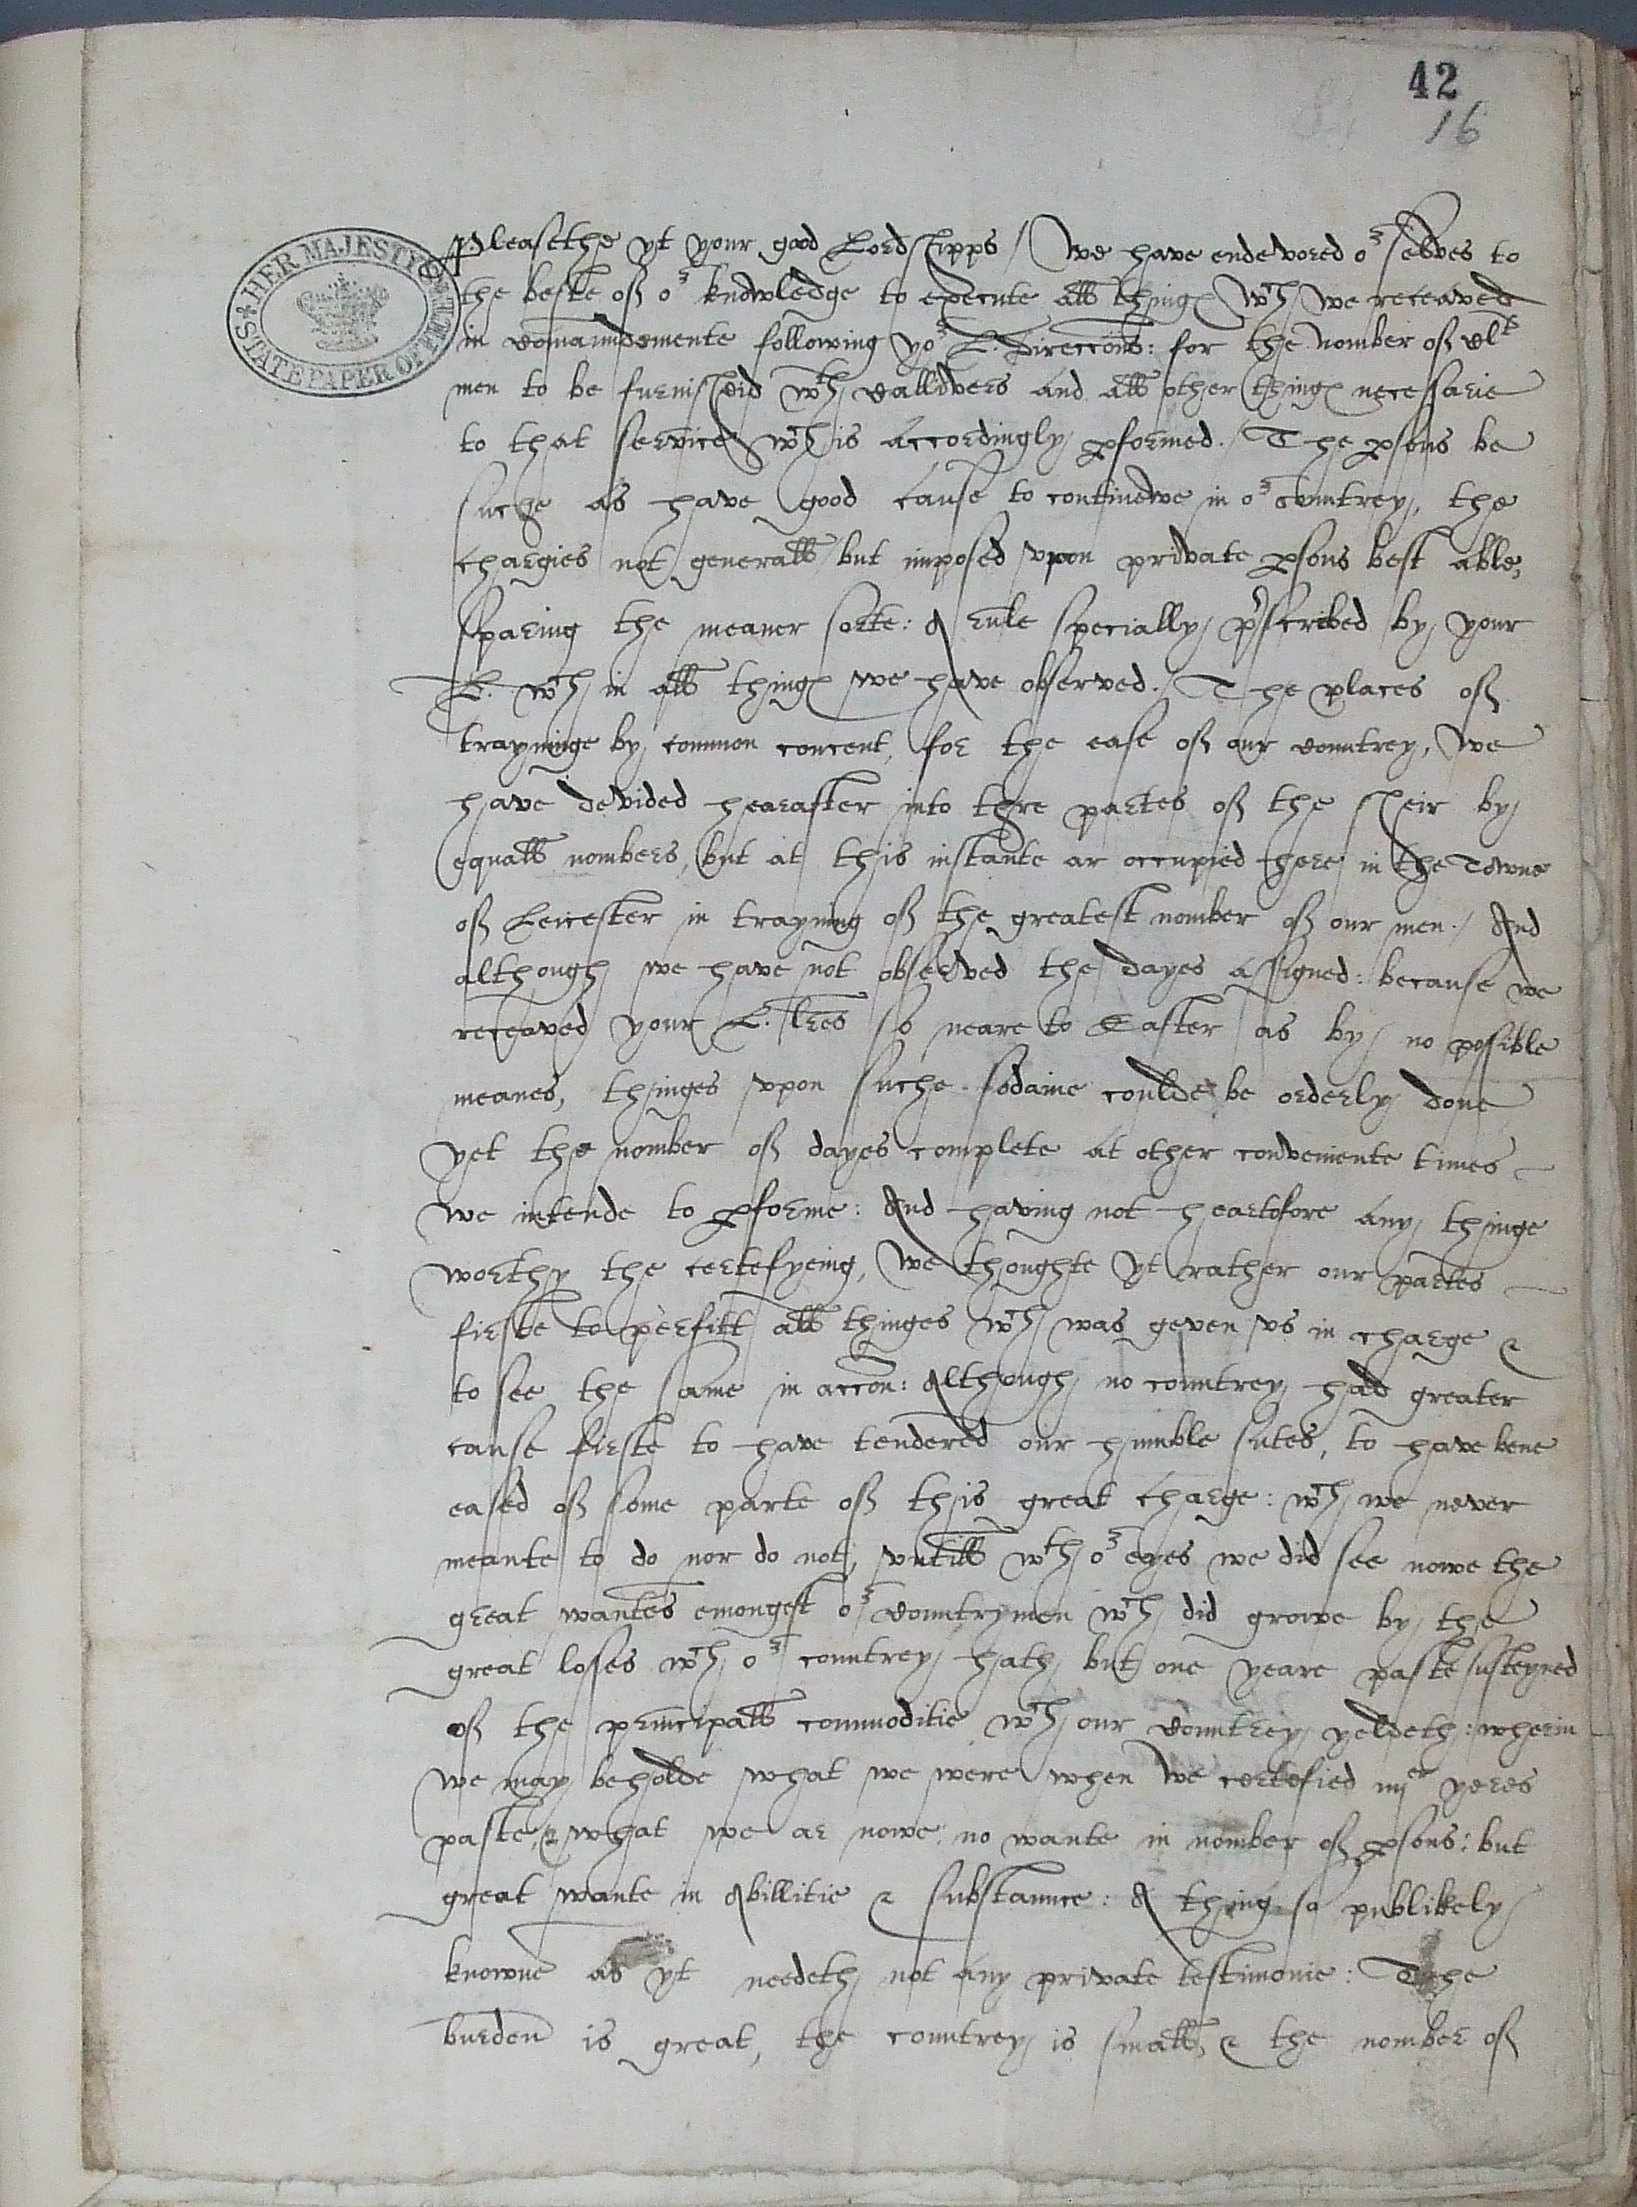 42
16
HER MAJESTY'S STATE PAPER OFFICE
Pleasethe yt your good Lordshipps / We have endevored or selves to
the beste of or knowledge to execute all things wch we receaved
in comaundemente following yor L. direccons: for the nomber of
men to be furnisherd wth callivers and all other things necessarie
to that service wch is accordingly pformed. / The psons be
suche as have good cause to continewe in or countrey, the
chargies not generall but imposed upon private psons best able,
sparing the meaner sorte: A rule specially pscribed by your
L. wch in all things we have observed. / The places of
trayninge by common concent, for the ease of our countrey, we
have devided hearafter into thre partes of the sheir by
equall nombers, but at this instante ar occupied here in the Towne
of Leicester in trayning of the greatest nomber of our men. / And
although we have not observed the dayes assigned: because we
receaved your L. lres so neare to Easter as by no posible
meanes, thinges upon suche sodaine coulde be orderly done
yet the nomber of dayes complete at other conveniente times
we intende to pforme: And having not heartofore any thinge
worthy the certefyeing, we thoughte yt rather our partes
firste to perfitt all thinges wch was geven us in charge &
to see the same in accon: Although no countrey had greater
cause firste to have tendered our humble sutes, to have bene
eased of some parte of this great charge: wch we never
meante to do nor do not, untill wth or eyes we did see nowe the
great wantes emongest or countrymen wch did growe by the
great loses wch or countrey hath but one yeare paste susteyned
of the principall commoditie wch our countrey yeldeth: wherin
we may beholde what we were when we certefied iiijer yeres
paste, & what we ar nowe. no wante in nomber of psons: but
great wante in Abillitie & substaunce: A thing so publikely
knowne as yt needeth not any private testimonie: The
burden is great, the countrey is small, & the nomber of